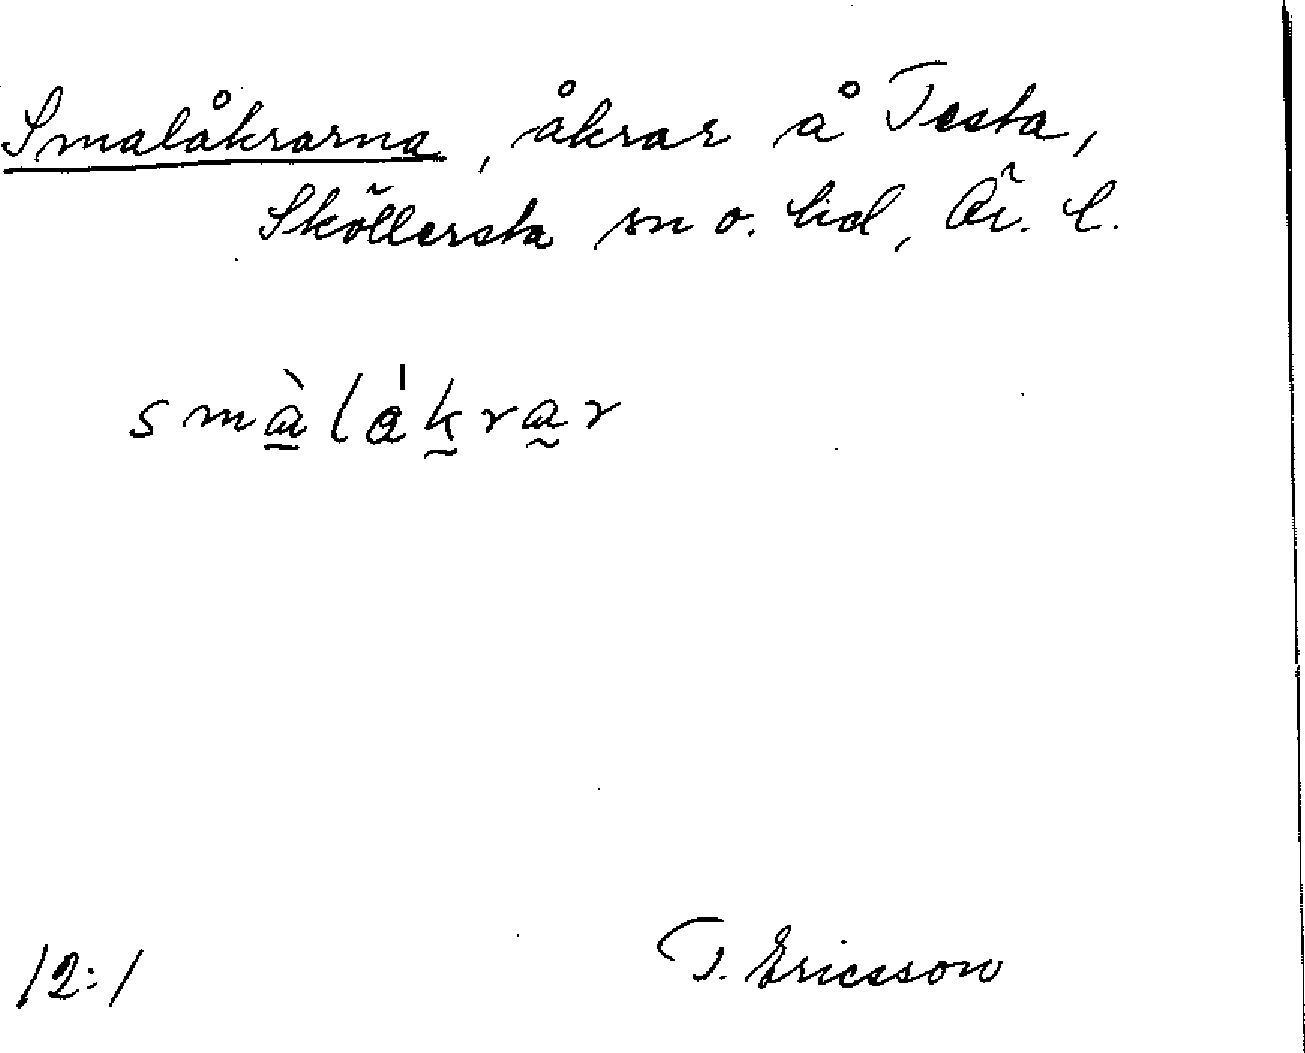 Smalåkrarna, åkrar å Testa,
Sköllersta sn o. hd, Ör. l.
smàlåkrar
12:1
T. Ericsson